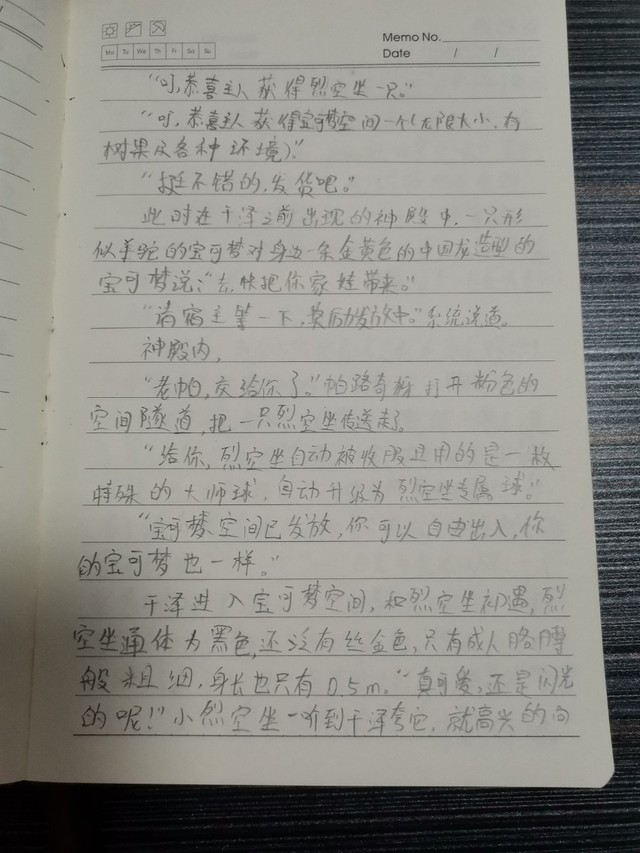 Memo No.
Mo Tu We Th Fr Sa Su
Date / /
“叮,恭喜主人获得烈空坐一只。”
“叮,恭喜主人获得宝可梦空间一个(无限大小,有
树果及各种环境)。”
“挺不错的,发货吧。”
此时在于泽之前出现的神殿中,一只形
似羊驼的宝可梦对身边一条金黄色的中国龙造型的
宝可梦说:“去,快把你家娃带来。”
“请宿主等一下,奖励发放中。”系统说道。
神殿内,
“老帕,交给你了。”帕路奇犽打开粉色的
空间隧道,把一只烈空坐传送走了。
“给你,烈空坐自动被收服且用的是一枚
特殊的大师球,自动升级为烈空坐专属球。”
“宝可梦空间已发放,你可以自由出入,你
的宝可梦也一样。”
于泽进入宝可梦空间,和烈空坐初遇,烈
空坐通体为黑色,还泛有丝金色,只有成人胳膊
般粗细,身长也只有0.5m。“真可爱,还是闪光
的呢!”小烈空坐一听到于泽夸它,就高兴的向